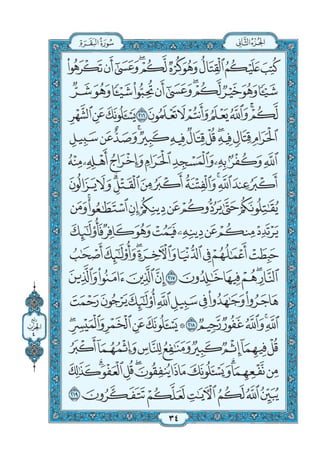 الجزء الثاني
سورة البقرة
كُتِبَ عَلَيْكُمُ ٱلْقِتَالُ وَهُوَ كُرْهٌ لَّكُمْ ۖ وَعَسَىٰٓ أَن تَكْرَهُوا۟
شَيْـًٔا وَهُوَ خَيْرٌ لَّكُمْ ۖ وَعَسَىٰٓ أَن تُحِبُّوا۟ شَيْـًٔا وَهُوَ شَرٌّ
لَّكُمْ ۗ وَٱللَّهُ يَعْلَمُ وَأَنتُمْ لَا تَعْلَمُونَ ٢١٦ يَسْـَٔلُونَكَ عَنِ ٱلشَّهْرِ
ٱلْحَرَامِ قِتَالٍ فِيهِ ۖ قُلْ قِتَالٌ فِيهِ كَبِيرٌ ۖ وَصَدٌّ عَن سَبِيلِ
ٱللَّهِ وَكُفْرٌۢ بِهِۦ وَٱلْمَسْجِدِ ٱلْحَرَامِ وَإِخْرَاجُ أَهْلِهِۦ مِنْهُ
أَكْبَرُ عِندَ ٱللَّهِ ۚ وَٱلْفِتْنَةُ أَكْبَرُ مِنَ ٱلْقَتْلِ ۗ وَلَا يَزَالُونَ
يُقَـٰتِلُونَكُمْ حَتَّىٰ يَرُدُّوكُمْ عَن دِينِكُمْ إِنِ ٱسْتَطَـٰعُوا۟ ۚ وَمَن
يَرْتَدِدْ مِنكُمْ عَن دِينِهِۦ فَيَمُتْ وَهُوَ كَافِرٌ فَأُو۟لَـٰٓئِكَ
حَبِطَتْ أَعْمَـٰلُهُمْ فِى ٱلدُّنْيَا وَٱلْـَٔاخِرَةِ ۖ وَأُو۟لَـٰٓئِكَ أَصْحَـٰبُ
ٱلنَّارِ ۖ هُمْ فِيهَا خَـٰلِدُونَ ٢١٧ إِنَّ ٱلَّذِينَ ءَامَنُوا۟ وَٱلَّذِينَ
هَاجَرُوا۟ وَجَـٰهَدُوا۟ فِى سَبِيلِ ٱللَّهِ أُو۟لَـٰٓئِكَ يَرْجُونَ رَحْمَتَ
ٱللَّهِ ۚ وَٱللَّهُ غَفُورٌ رَّحِيمٌ ٢١٨ ۞ يَسْـَٔلُونَكَ عَنِ ٱلْخَمْرِ وَٱلْمَيْسِرِ ۖ
قُلْ فِيهِمَآ إِثْمٌ كَبِيرٌ وَمَنَـٰفِعُ لِلنَّاسِ وَإِثْمُهُمَآ أَكْبَرُ
مِن نَّفْعِهِمَا ۗ وَيَسْـَٔلُونَكَ مَاذَا يُنفِقُونَ قُلِ ٱلْعَفْوَ ۗ كَذَٰلِكَ
يُبَيِّنُ ٱللَّهُ لَكُمُ ٱلْـَٔايَـٰتِ لَعَلَّكُمْ تَتَفَكَّرُونَ ٢١٩
ربع
الحزب
٤
٣٤